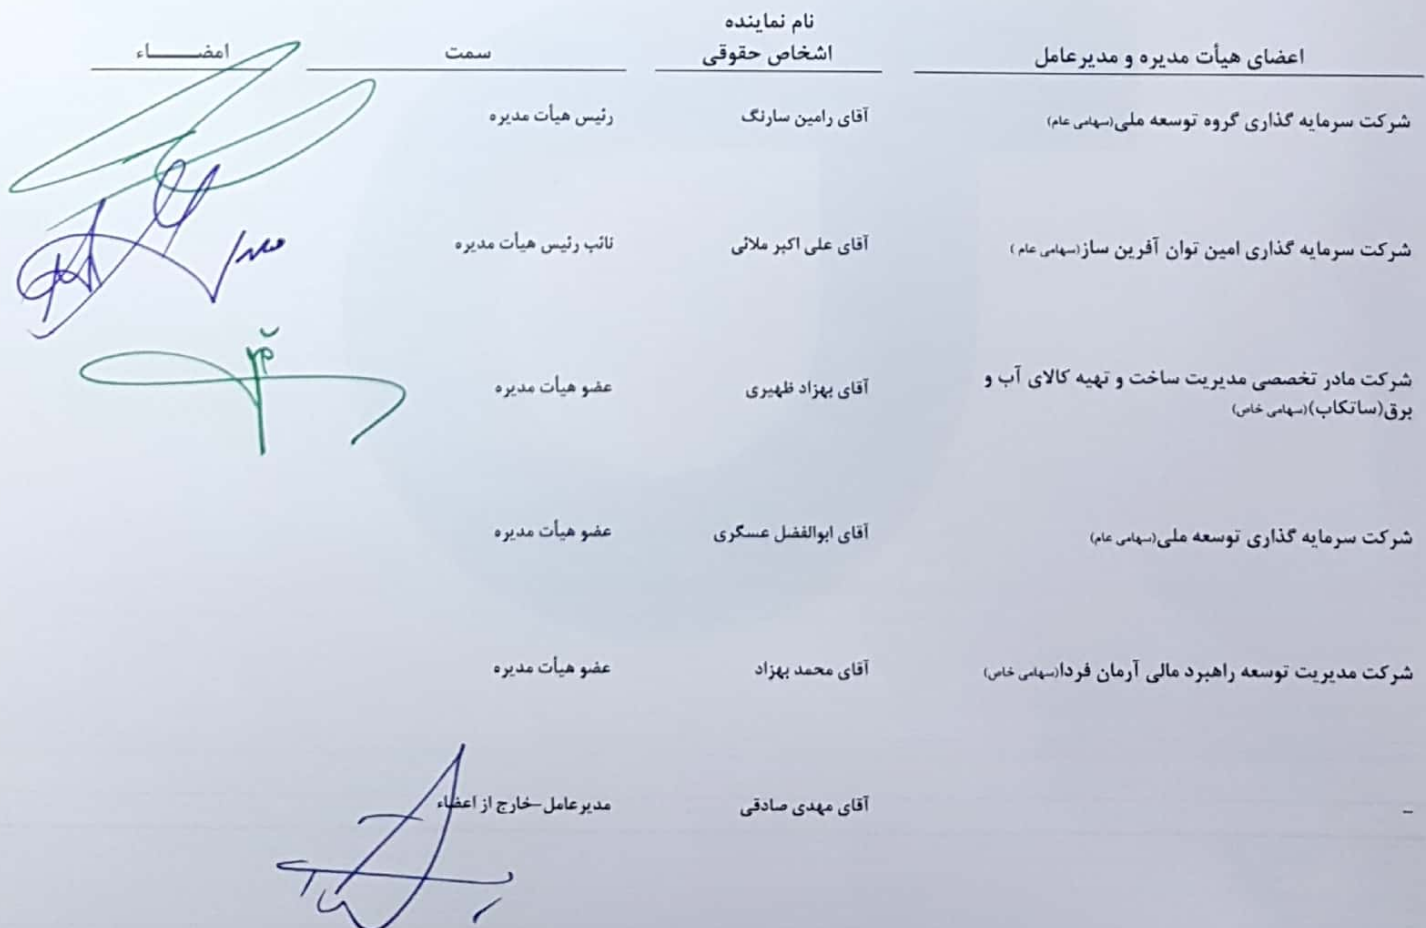 اعضای هیأت مدیره و مدیرعامل
نام نماینده
اشخاص حقوقی
سمت
امضـــــاء
شرکت سرمایه گذاری گروه توسعه ملی(سهامی عام) آقای رامین سارنگ رئیس هیأت مدیره
شرکت سرمایه گذاری امین توان آفرین ساز(سهامی عام ) آقای علی اکبر ملائی نائب رئیس هیأت مدیره
شرکت مادر تخصصی مدیریت ساخت و تهیه کالای آب و
برق(ساتکاب)(سهامی خاص) آقای بهزاد ظهیری عضو هیأت مدیره
شرکت سرمایه گذاری توسعه ملی(سهامی عام) آقای ابوالفضل عسگری عضو هیأت مدیره
شرکت مدیریت توسعه راهبرد مالی آرمان فردا(سهامی خاص) آقای محمد بهزاد عضو هیأت مدیره
– آقای مهدی صادقی مدیرعامل–خارج از اعضاء